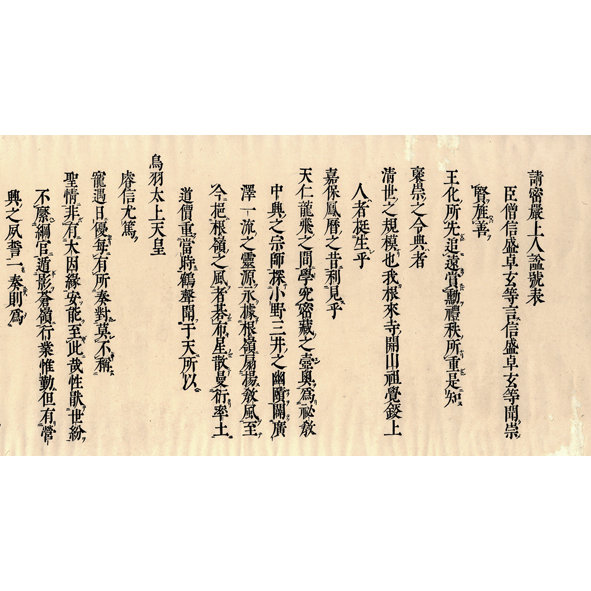 請密嚴上人諡號表
臣僧信盛卓玄等言信盛卓玄等聞崇
賢旌善
王化所先追遠賞勳禮秩所重是知
襃崇之令典者
清世之規模也我根來寺開山祖覺鑁上
人者挺生乎
嘉保鳳曆之昔利見乎
天仁龍飛之間學究密藏之壺奧爲祕敎
中興之宗師探小野三井之幽賾闢廣
澤一流之靈源永據根嶺扇揚敎風至
今挹根嶺之風者棊布星散曼衍率土
道價重當時鶴聲聞于天所以
鳥羽太上天皇
睿信尤篤
寵遇日優每有所奏對莫不稱
聖情非有大因緣安能至此哉性猒世紛
不縻綱官遁影蒼嶺行業惟勤但有營
興之夙誓一奏則爲